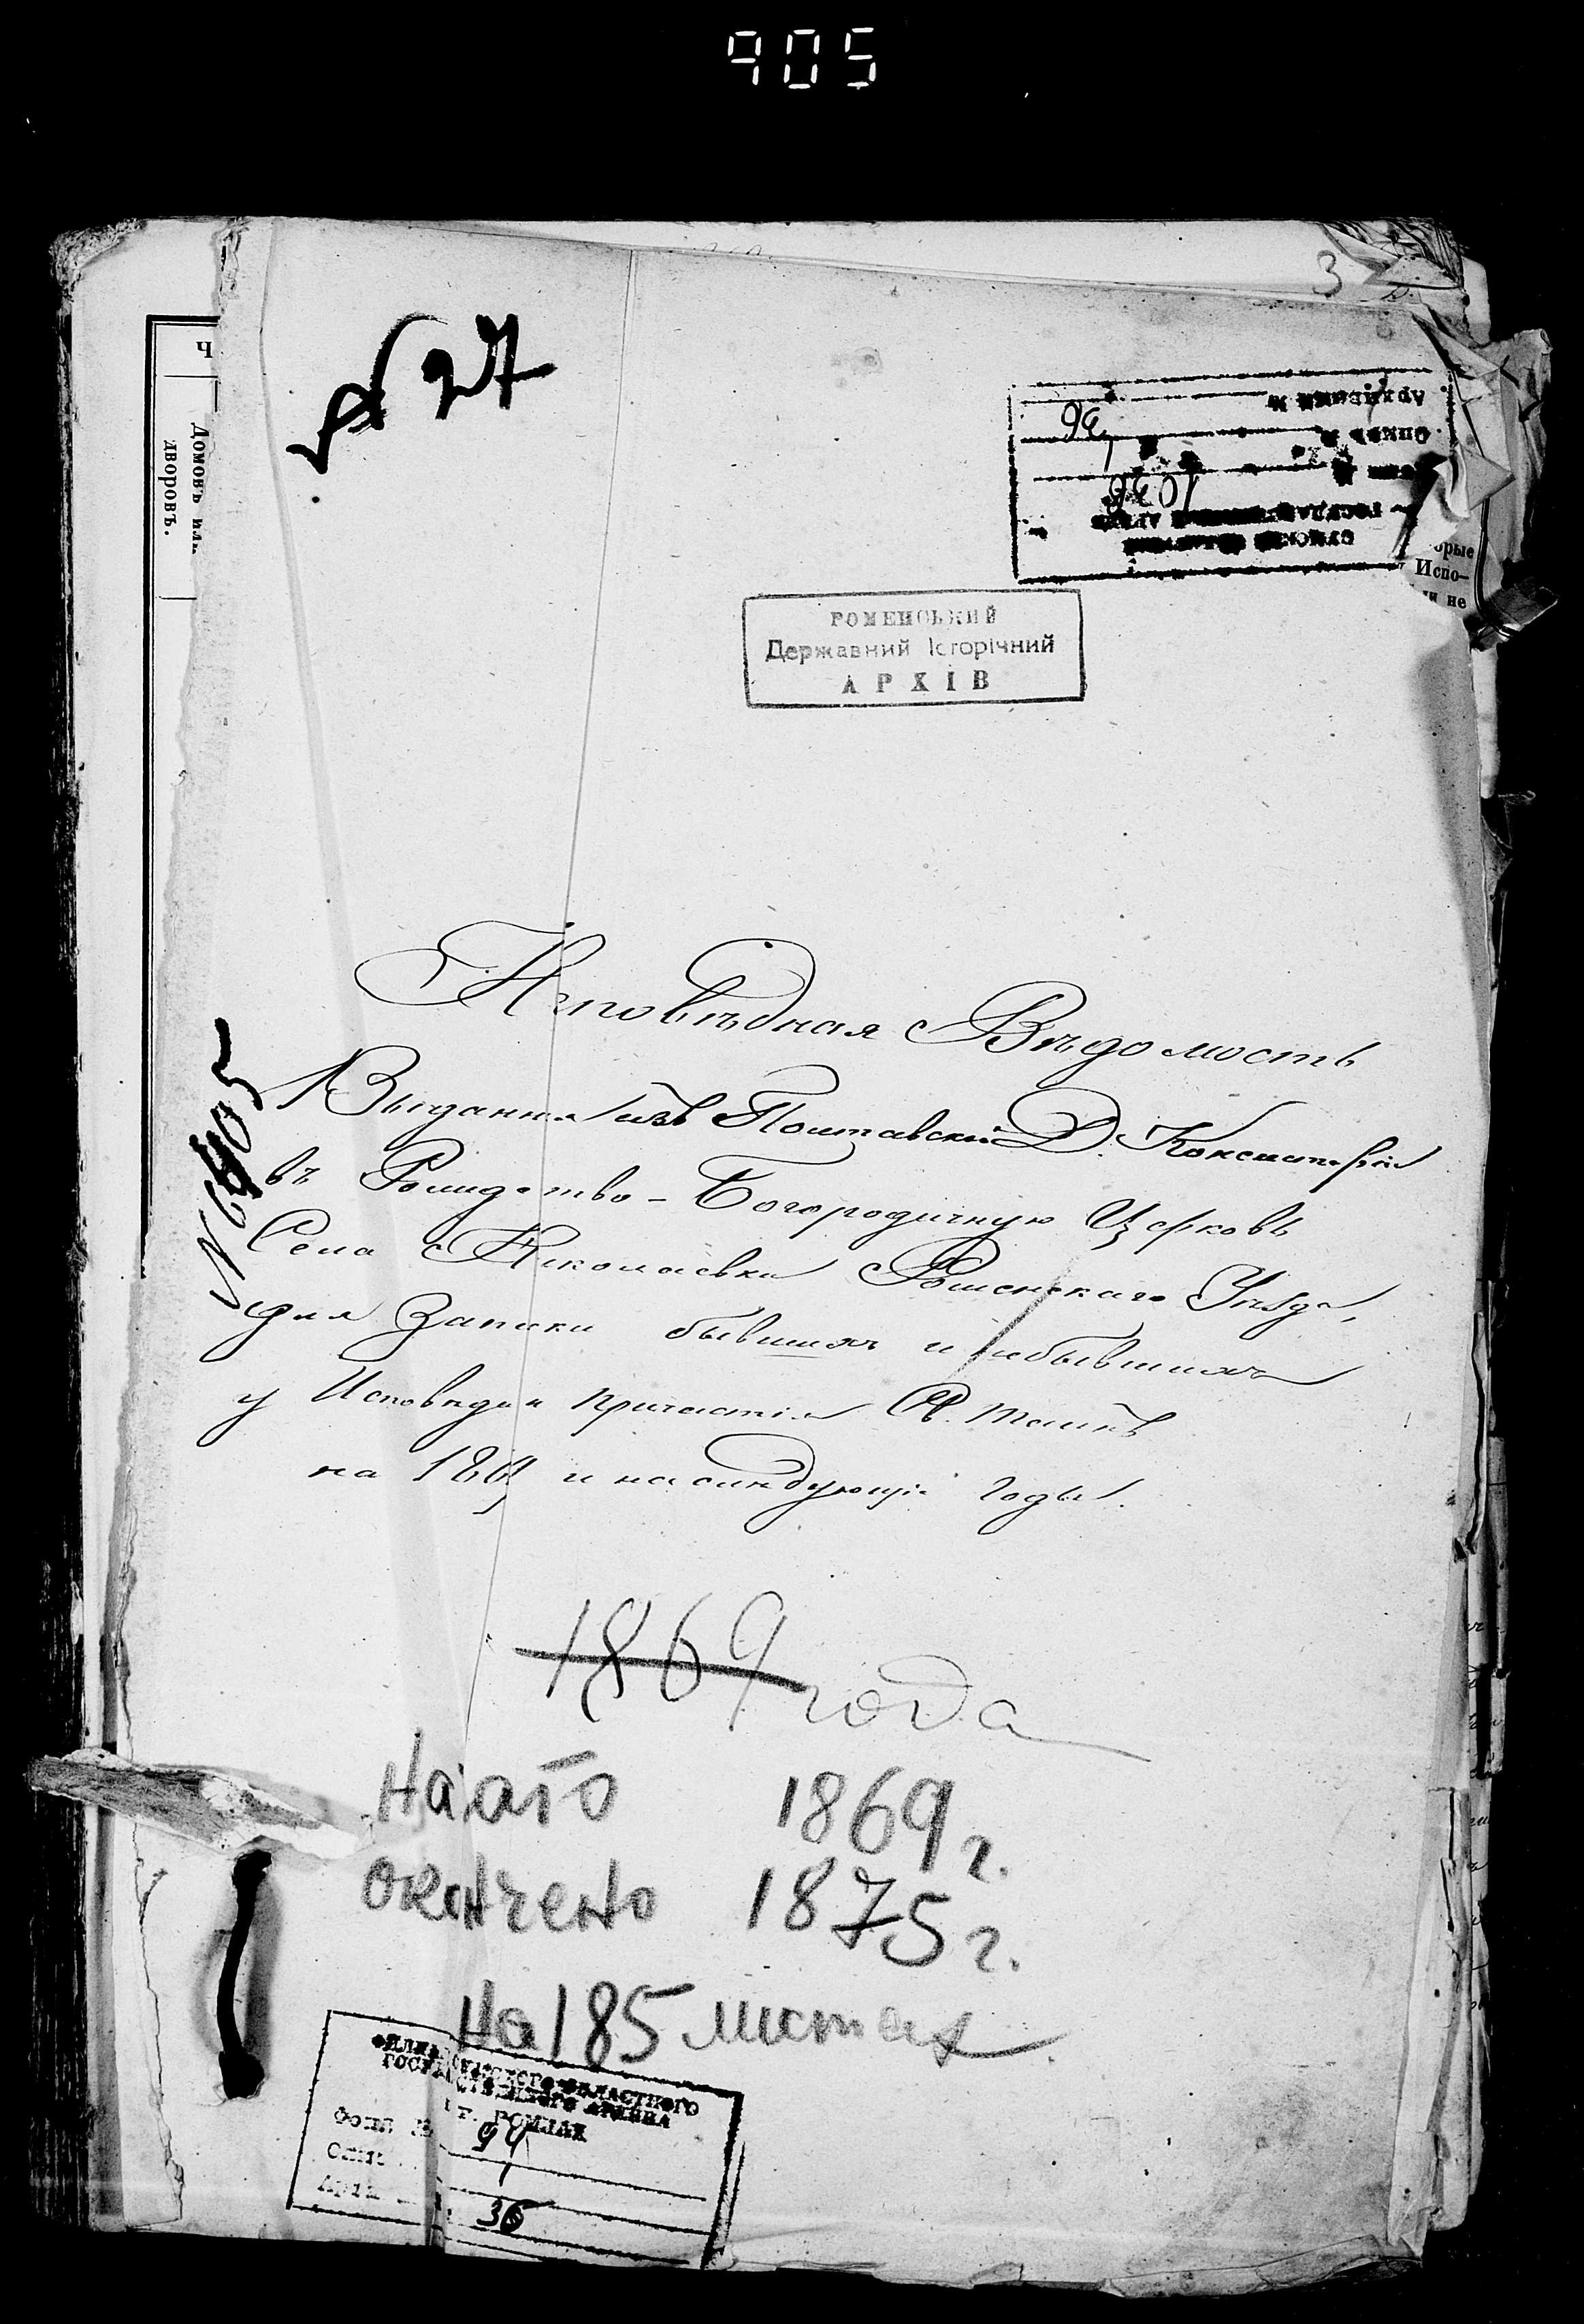 905
3
№ 27
Ч
Домовъ ил
дворовъ.
орые
Испо–
и не
РОМЕНСЬКИЙ
Державний Історічний
АРХІВ
Исповѣдная Вѣдомость
Выданная изъ Полтавской Д. Консисторіи
въ Рождество-Богородичную Церковь
Села Николаевки Роменскаго Уѣзда,
для Записки бывшихъ и небывшихъ
у Исповѣди и причастія Св. Таинъ
на 1869 и на слѣдующіе годы.
№ 905
1869 года
Начато 1869 г.
окончено 1875 г.
На 185 листах
ФИЛИАЛ СУМСКОГО ОБЛАСТНОГО
ГОСУДАРСТВЕННОГО АРХИВА
в г. РОМНАХ
Фонд № 94
Опис 1
Арх 36